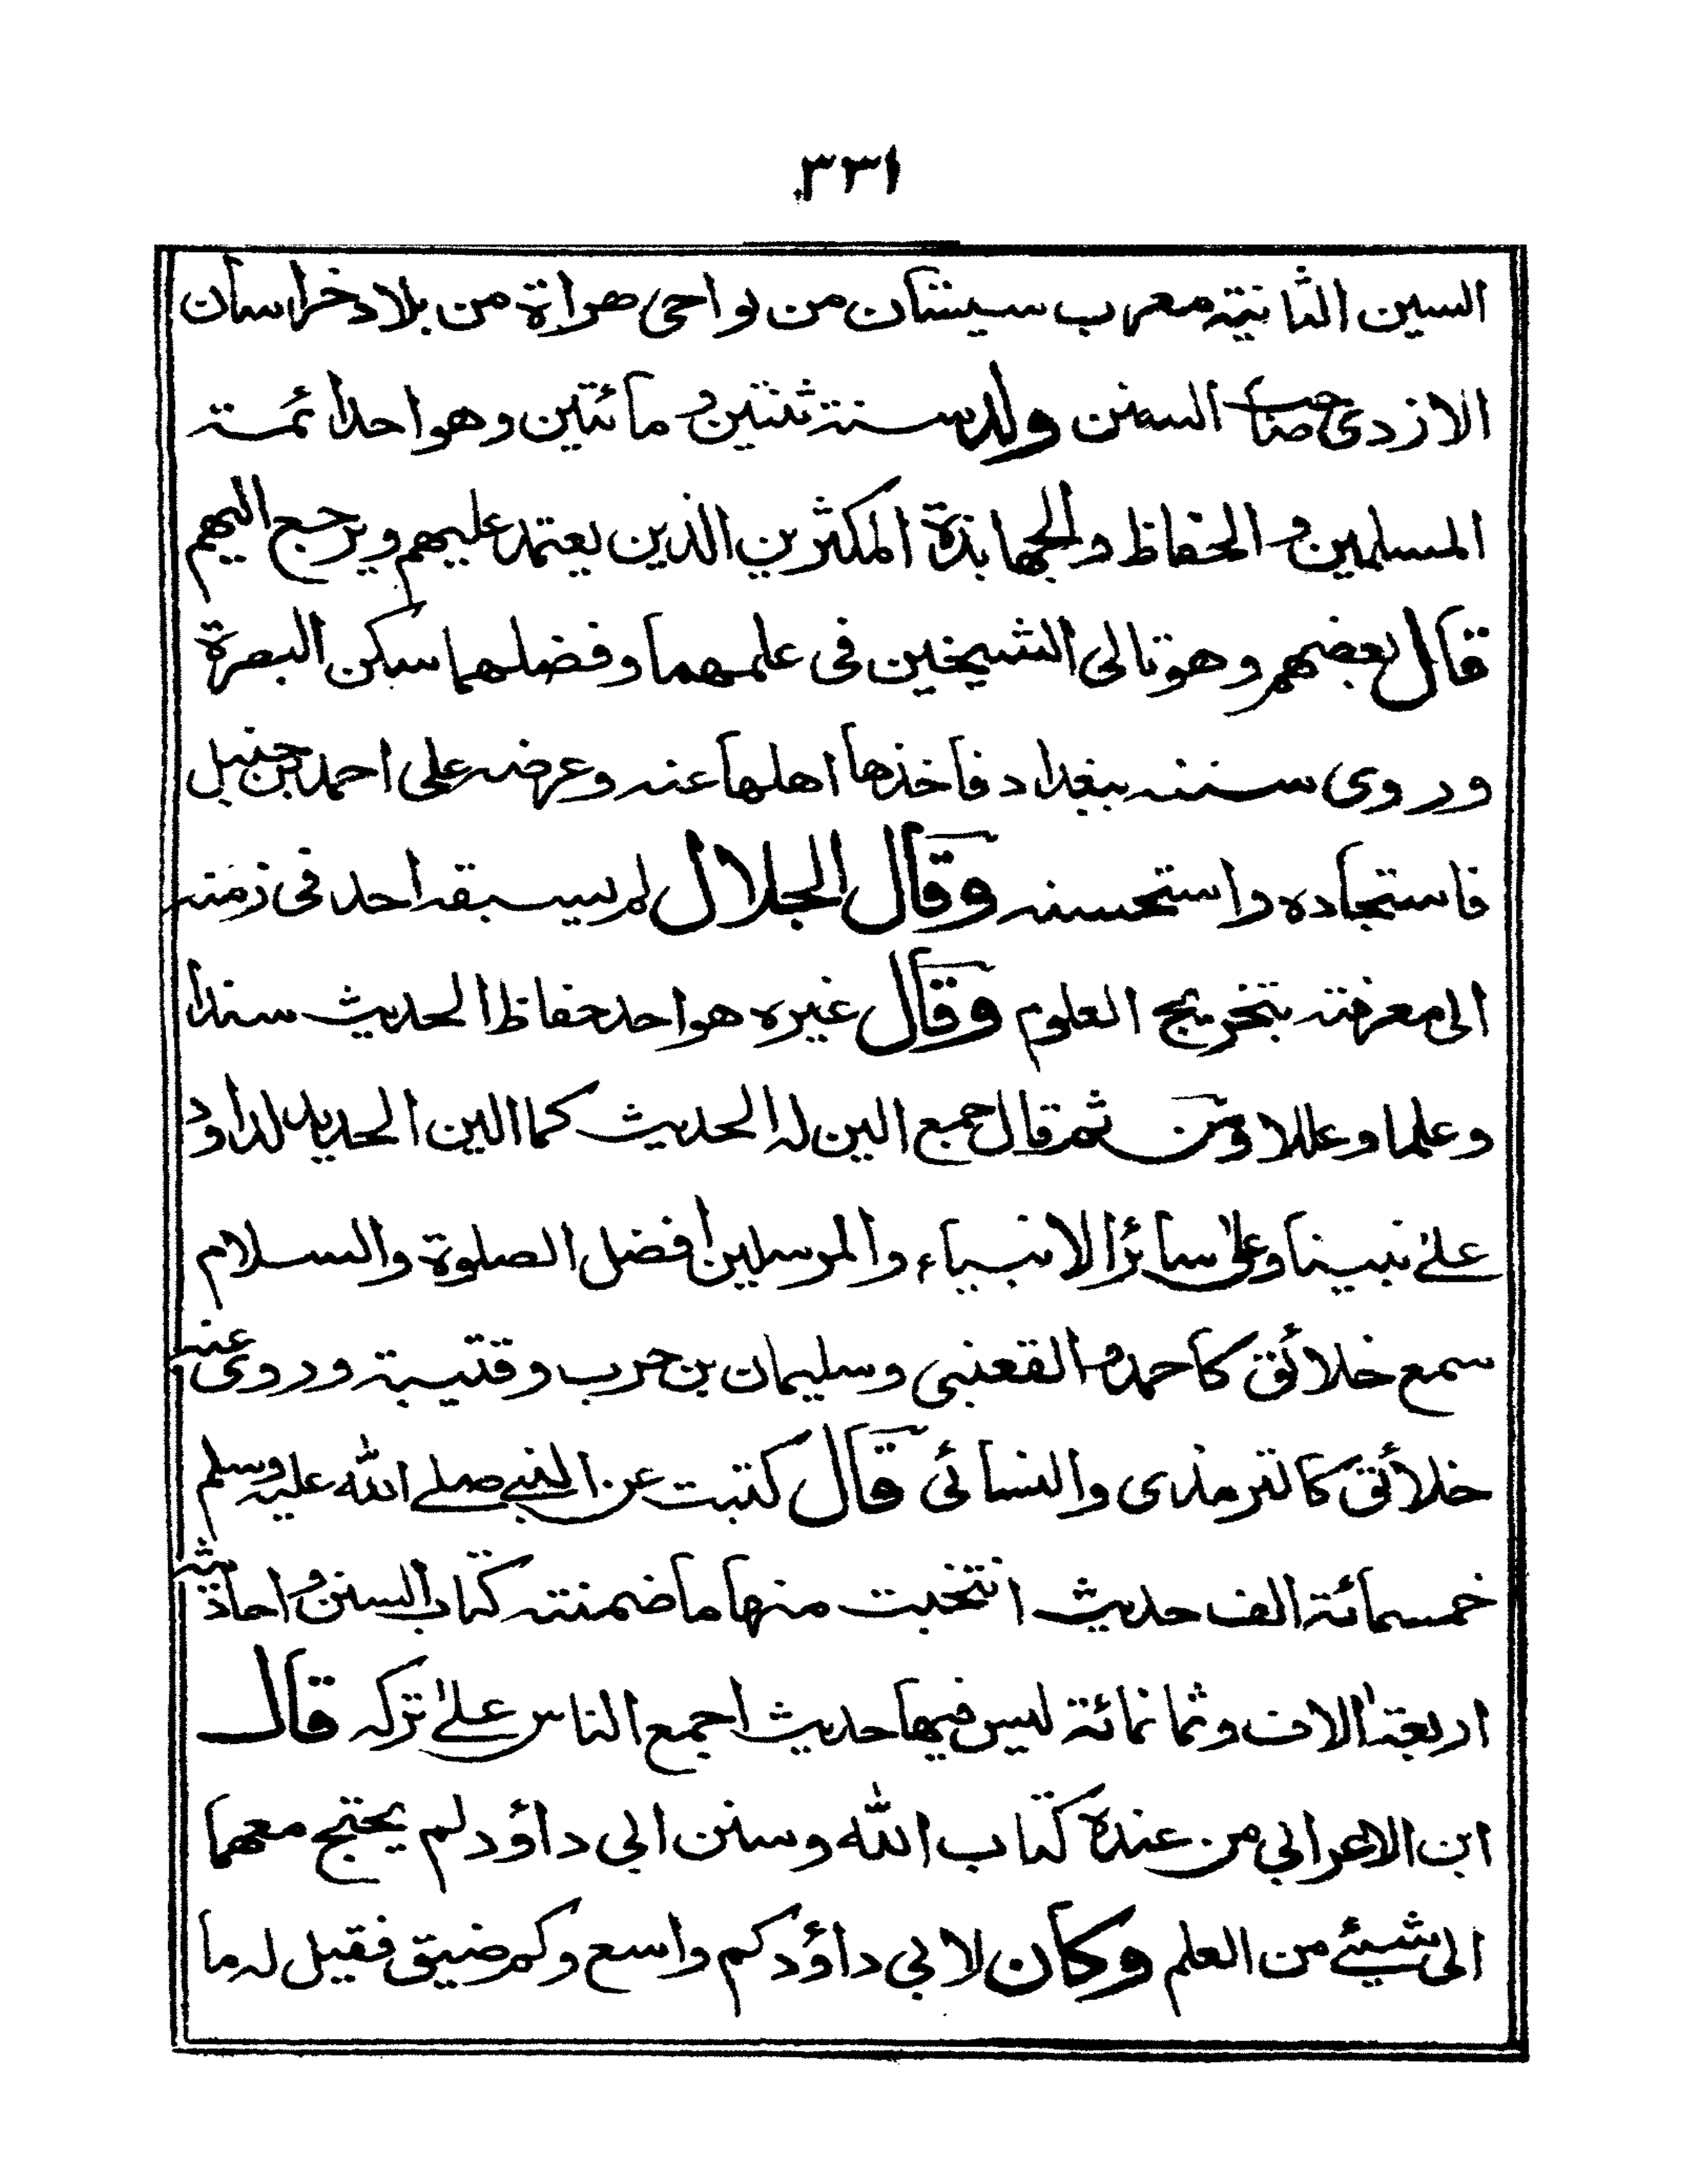 ٣٣١
السين الثانية معرب سيستان من نواحى هراة من بلاد خراسان
الازدى صاحب السنن ولد سنة ثنتين و مائتين وهو احد ائمة
المسلمين و الحفاظ والجهابذة المكثرين الذين يعتمد عليهم ويرجع اليهم
قال بعضهم وهو تالى الشيخين فى علمهما وفضلهما سكن البصرة
وروى سننه ببغداد فاخذها اهلها عنه وعرضه على احمد بن حنبل
فاستجاده واستحسنه وقال الجلال لم يسبقه احد فى زمنه
الى معرفته بتخريج العلوم وقال غيره هو احد حفاظ الحديث سندا
وعلما وعللا ومن ثم قال جمع الين له الحديث كما الين الحديد لداود
على نبينا وعلى سائر الانبياء والمرسلين افضل الصلوة والسلام
سمع خلائق كاحمد و القعنبى وسليمان بن حرب وقتيبة وروى عنه
خلائق كالترمذى والنسائى قال كتبت عن النبى صلى الله عليه وسلم
خمسمائة الف حديث انتخبت منها ما ضمنته كتاب السنن و احاديثه
اربعة الاف وثمانمائة ليس فيها حديث اجمع الناس على تركه قال
ابن الاعرابى من عنده كتاب الله وسنن ابى داؤد لم يحتج معهما
الى شيئ من العلم وكان لابى داؤد كم واسع وكم ضيق فقيل له ما